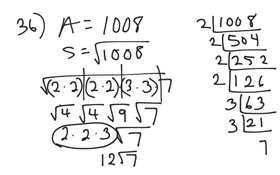 36) A = 1008
S = √1008
√(2·2)(2·2)(3·3)7
√4 √4 √9 √7
2·2·3√7
12√7
2 1008
2 504
2 252
2 126
3 63
3 21
7